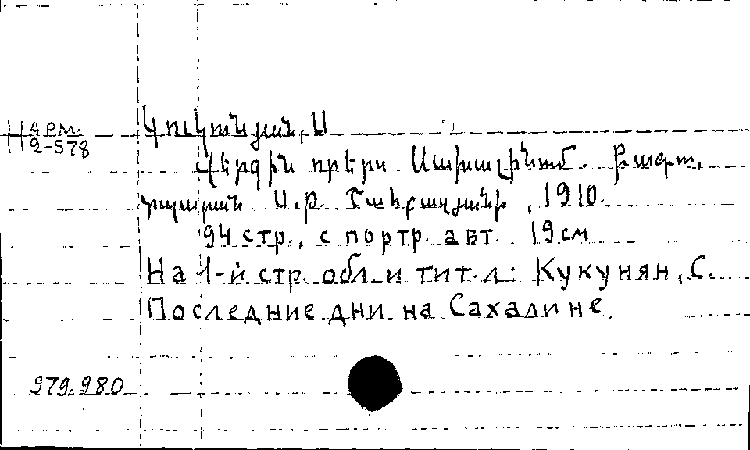 Կուկունյան, Ս
Арм. 2-578
Վերջին օրերս Սախալինում.
տպարան Ս.Բ. , 1910.
94 стр., с портр. авт. 19 см
На 1-й стр. обл. и тит. л: Кукунян, С.
Последние дни на Сахалине.
979.980